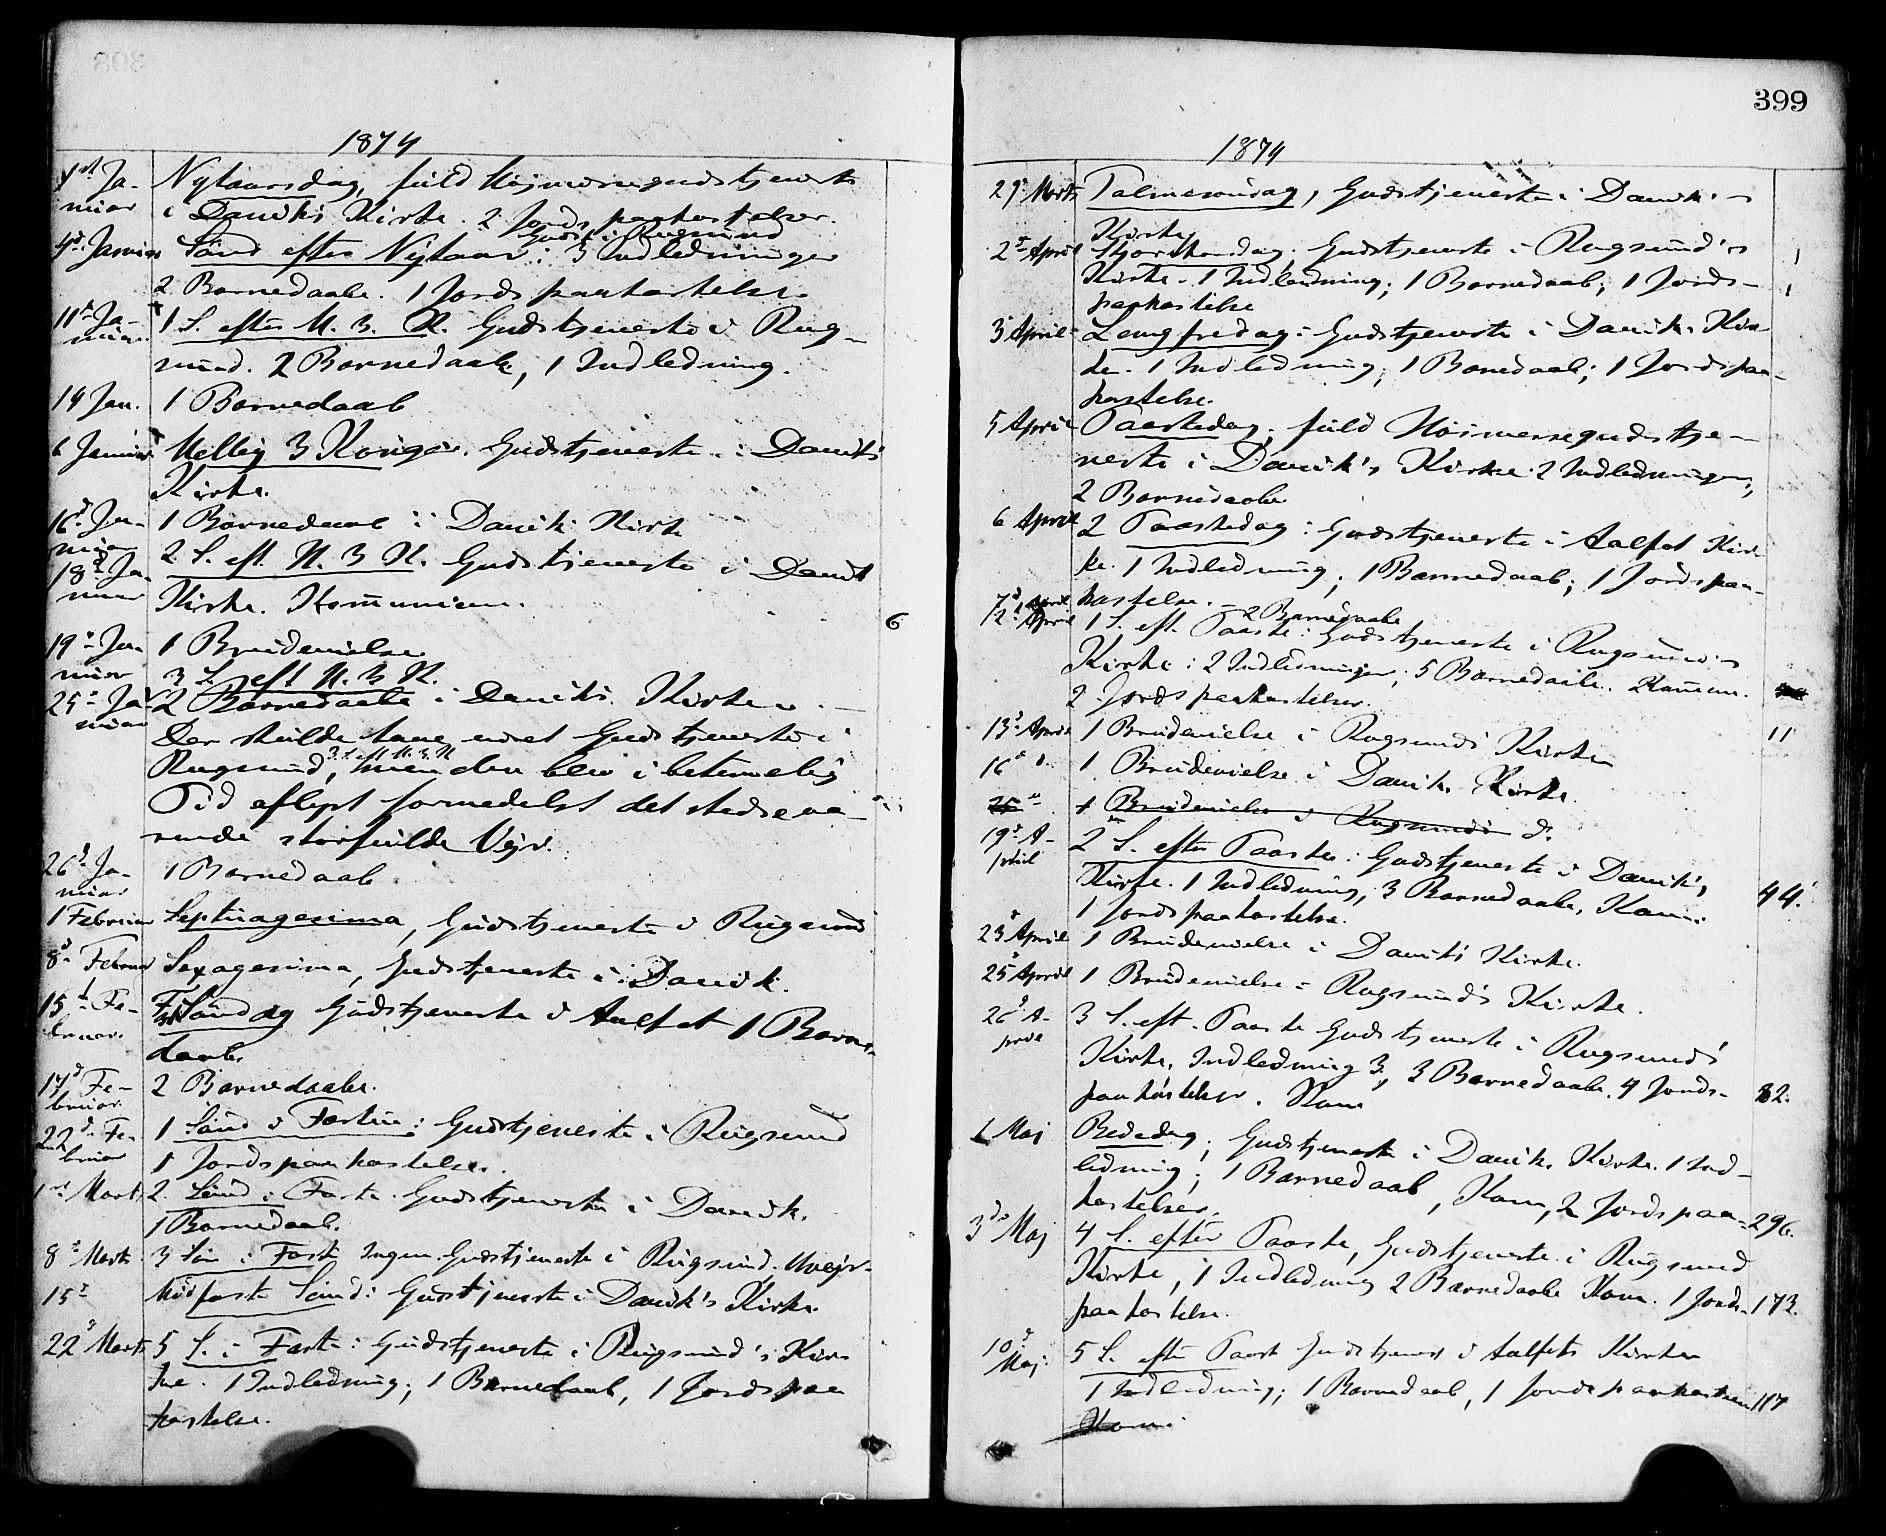 399
1874
1st Ja- Nytaarsdag, fuld Høimessegudstjeneste
nuar i Daviks Kirke. 2 Jordspaakastelser.
Gudst. i Rugsund
4d Januar Sønd efter Nytaar: 3 Indledninger
2 Barnedaabe. 1 Jordspaakastelse.
11t Ja- 1 S. efter H. 3. K. Gudstjeneste i Rug-
nuar sund. 2 Barnedaabe, 1 Indledning.
14 Jan. 1 Barnedaab
6 Januar Hellig 3 Konger. Gudstjeneste i Daviks
Kirke.
16d Ja- 1 Barnedaab i Davik Kirke
nuar 2 S. eft. H. 3 K. Gudstjeneste i Davik
18d Ja-
nuar Kirke. Kommunion. 6
19d Ja- 1 Brudevielse
nuar 3 S. eft H. 3 K.
25d Ja- 2 Barnedaabe i Daviks Kirke.
nuar Der skulde have været Gudstjeneste i
3 S. eft H. 3 K
Rugsund, men den blev i betimelig
Tid aflyst formedelst det stedseva-
rende stormfulde Vejr.
26d Ja- 1 Barnedaab
nuar
1 Februar Septuagesima, Gudstjeneste i Rugsund
8d Februar Sexagesima, Gudstjeneste i Davik.
15d Fe- Fastesøndag Gudstjeneste i Aalfot 1 Barne-
bruar. daab.
17d Fe- 2 Barnedaabe.
bruar
22d Fe- 1 Sønd i Fasten: Gudstjeneste i Rugsund
bruar 1 Jordspaakastelse.
1st Marts 2. Sønd i Faste. Gudstjeneste i Davik.
1 Barnedaab.
8d Marts 3 Søn i Fast Ingen Gudstjeneste i Rugsund. Uvejr.
15d Midfaste Sønd: Gudstjeneste i Davik's Kirke
22d Marts 5 S. i Faste: Gudstjeneste i Rugsund's Kir-
ke. 1 Indledning; 1 Barnedaab, 1 Jordspaa
kastelse.
1874
29 Marts Palmesøndag, Gudstjeneste i Davik's
Kirke
2d April Skjærthorsdag; Gudstjeneste i Rugsund's
Kirke. 1 Indledning; 1 Barnedaab; 1 Jords-
paakastelse
3 April Langfredag: Gudstjeneste i Daviks Kir-
ke. 1 Indledning; 1 Barnedaab; 1 Jordspaa-
kastelse.
5 April Paaskedag; fuld Høimessegudstje-
neste i Davik's Kirke 2 Indledninger,
2 Barnedaabe
6 April 2 Paaskedag: Gudstjeneste i Aalfot Kir-
ke. 1 Indledning; 1 Barnedaab; 1 Jordspaa-
kastelse.
7d April 2 Barnedaabe
12t April 1 S. eft. Paaske: Gudstjeneste i Rugsund's
Kirke: 2 Indledninger; 5 Barnedaabe. Kommun.
2 Jordspaakastelser.
13d April 1 Brudevielse i Rugsunds Kirke 11
16d 1 Brudevielse i Davik Kirke.
1 Brudevielse i Rugsunds
19d A- 2 S. efter Paaske: Gudstjeneste i Davik's
pril Kirke. 1 Indledning, 3 Barnedaabe, Kom. 44.
1 Jordspaakastelse.
23d April 1 Brudevielse i Daviks Kirke.
25d April 1 Brudevielse i Rugsund's Kirke.
26d A- 3 S. eft. Paaske Gudstjeneste i Rugsunds
pril Kirke, Indledning 3, 3 Barnedaabe. 4 Jords-
paakastelser. Kom 82.
1 Maj Bededag; Gudstjeneste i Davik. Kirke. 1 Ind-
ledning; 1 Barnedaab, Kom, 2 Jordspaa-
kastelser. 296.
3d Maj 4 S. efter Paaske, Gudstjeneste i Rugsund
Kirke, 1 Indledning 2 Barnedaabe Kom. 1 Jords- 173.
paakastelse.
10d 5 S. efter Paask Gudstjenest i Aalfots Kirke
Maj. 1 Indledning; 1 Barnedaab, 1 Jordspaakastelse 117
Kom: